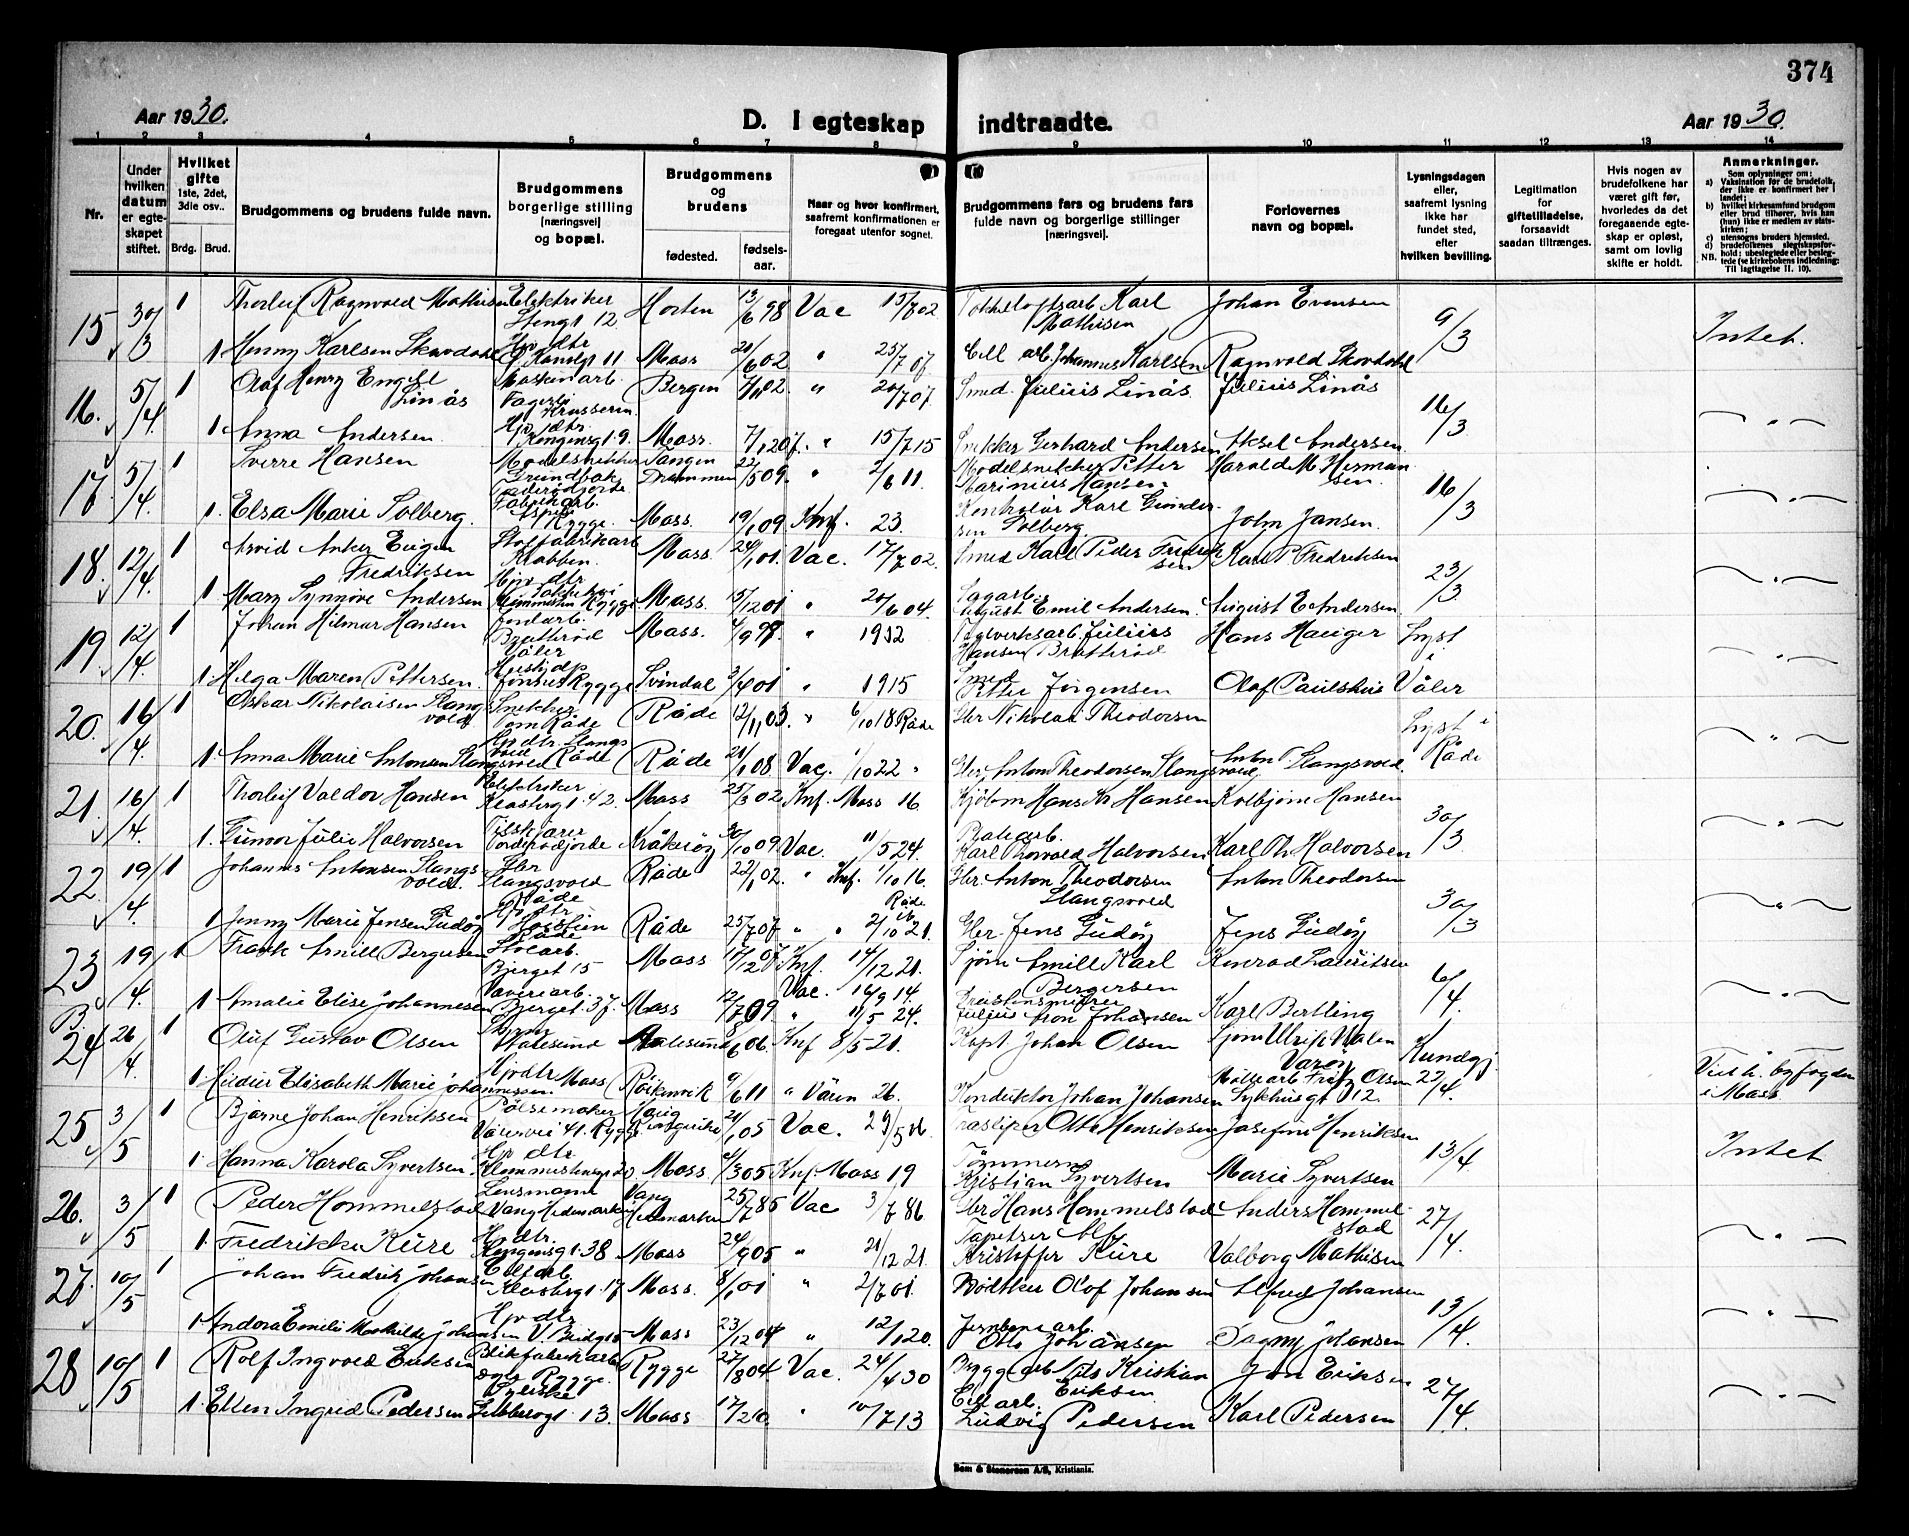 374
Aar 1930.
D. I egteskap indtraadte.
Aar 1930.
1 2 3 4 5 6 7 8 9 10 11 12 13 14
Nr.
Under hvilken datum er egteskapet stiftet.
Hvilket gifte 1ste, 2det, 3die osv..
Brdg. Brud.
Brudgommens og brudens fulde navn.
Brudgommens borgerlige stilling [næringsvei] og bopæl.
Brudgommens og brudens
fødested. fødselsaar.
Naar og hvor konfirmert, saafremt konfirmationen er foregaat utenfor sognet.
Brudgommens fars og brudens fars fulde navn og borgerlige stillinger [næringsvei].
Forlovernes navn og bopæl.
Lysningsdagen eller, saafremt lysning ikke har fundet sted, efter hvilken bevilling.
Legitimation for giftetilladelse, forsaavidt saadan tiltrænges.
Hvis nogen av brudefolkene har været gift før, hvorledes da det foregaaende egteskap er opløst, samt om lovlig skifte er holdt.
Anmerkninger.
Som oplysninger om:
a) Vaksination før de brudefolk, der ikke er konfirmert her i landet;
b) hvilket kirkesamfund brudgom eller brud tilhører, hvis han (hun) ikke er medlem av statskirken;
c) utensogns bruders hjemsted.
d) brudefolkenes slegtskapsforhold: ubeslegtede eller beslegtede (se kirkebokens indledning;
NB. Til lagttagelse II. 10).
15 30/3 1 Thorleif Ragnvold Mathisen Elektriker Stengt 12 Horten 13/6 98 Vac 15/7 02 Karl Mathisen Johan Evensen 9/3 Intet.
1 Henny Karlsen Skovdahl Hjv dtr 11 Moss 21/6 02 " 25/7 07 Cell arb. Johannes Karlsen Ragnvold Skovdahl
16. 5/4. 1 Olaf Henry Engel Linås Maskinarb. Bergen 7/11 02. " 20/7 07. Smed. Julius Linås. Julius Linås 16/3 — " —
1 Anna Andersen Hjv dtr Kongensgt. 9. Moss. " 15/7 15 Snekker Gerhard Andersen Aksel Andersen
17 5/4. 1 Sverre Hansen Modelsnekker Tangen Drammen 22/5 09. " 2/6 11. Modelsnekker Petter Marinius Hansen Harald M. Hermansen. 16/3 — " —
1. Elsa Marie Solberg. Fabrikarb. Rygge. Moss. 19/1 09 Knf. 23. Kontrolør Karl Gundersen Solberg John Jansen.
18. 12/4. 1 Arvid Anker Eugen Fredriksen Stolfabrikarb Krabben. Moss. 24/1 01. Vac. 17/7 02. Smed Karl Peder Fredriksen Karl P. Fredriksen 23/3 — " —
1 Mary Synnøve Andersen Hjv dtr Rygge Moss. 15/12 01 " 20/6 04. Sagarb. August Emil Andersen. August E. Andersen.
19 12/4. 1 Johan Hilmar Hansen Jordarb. Bratterød Våler Moss. 4/9 98. " 1902 Teglverksarb. Julius Hansen Bratterød Hans Hauger Lyst i Våler — " —
1 Helga Maren Pettersen. Hushjelp Rygge Svindal 3/4 01 " 1915 Smed Petter Jørgensen Olaf Paulshus
20. 16/4. 1 Oskar Nikolaisen Slangsvold Snekker Tom Råde Råde 12/11 03 " 6/10 18 Råde Gbr Nikolai Theodorsen Lyst i Råde — " —
1 Anna Marie Antonsen Slangsvold Hjv dtr. Slangsvold Råde Råde 21/1 08 Vac. 1/10 22 " Gbr. Anton Theodorsen Slangsvold, Anton T Slangsvold.
21. 16/4. 1 Thorleif Valdor Hansen Elektriker Klostergt. 42. Moss 25/3 02 Knf. Moss 16 Kjøbm Hans Kr Hansen Kolbjørn Hansen 30/3 — " —
1. Gunvor Julie Halvorsen Kråkerøy 30/10 09 Vac. 11/5 24. Platearb. Karl Thorvald Halvorsen Karl Th. Halvorsen
22. 19/4. 1 Johannes Antonsen Slangsvold. Gbr Slangsvold Råde Råde 22/1 02. " Knf. 1/10 16. Råde Gbr. Anton Theodorsen Slangsvold Anton Theodorsen 30/3 — " —
1 Jenny Marie Jensen Gudøy Hjv dtr Råde Råde 25/7 07 " " 2/10 21. Gbr. Jens Gudøy Jens Gudøy
23 19/4. 1 Frank Emill Bergersen Stolarb. Bjerget 15 Moss 17/12 07 Knf. 14/12 21. Sjøm Emill Karl Bergersen Konrad Lauritsen 6/4. — " —
1 Amalie Elise Johannesen Væveriarb. Bjerget. 37. Moss 12/7 09 " 11/5 24. Julius Aron Johansen Karl Bertling
24 26/4. 1 Oluf Gustav Olsen Aalesund Aalesund 8/6 06. Knf 8/5 21. Kapt Johan Olsen Sjøm Ulrik Valen Kundgj 27/4. Viet h. byfogden i Moss
1. Heidier Elisabeth Marie Johannessen. Hjv dtr Moss Røikenvik 9/6 11 " Våren 26. Konduktør Johan Johansen Fritz Olsen Sykhusgt 12.
25 3/5 1 Bjarne Johan Henriksen Pølsemaker Vålervei 41. Rygge Ringerike 21/1 05 Vac. 29/5 06. Træsliper Otto Henriksen Josefine Henriksen 13/4 Intet
1. Hanna Karola Syvertsen. Hjv dtr Moss 4/3 05 Knf. Moss 19 Tømmerm Kristian Syvertsen Marie Syvertsen
26. 3/5 1 Peder Hommelstad Lensmann Vang Hedemarken Vang Hedmarken 25/7 85 Vac 3/7 86 Gbr Hans Hommelstad Anders Hommelstad 27/4. — " —
1. Fredrikke Kure Hjv dtr. Kongensgt. 38 Moss 24/9 05 " 21/12 21. Tapetser Kristoffer Kure Valborg Mathisen
27. 10/5 1 Johan Fredrik Johansen Cell arb Klostergt. 17 Moss. 8/1 01 " 2/7 01. Bødtker Olaf Johansen Alfred Johansen 13/4. — " —
1. Andora Emilie Mathilde Johansen Hjv dtr Moss 23/12 04 " 12/1 20. Jernbanearb Otto Johansen Dagny Johansen
28 10/5 1 Rolf Ingvold Eriksen Blikfabrikarb Rygge. Rygge 27/8 04 Vac. 24/4 30 Bygg arb. Nils Kristian Eriksen Jon Eriksen 27/4. — " —
1. Ellen Ingrid Pedersen 13. Moss 17/2 10 " 10/7 13 Cell arb. Ludvig Pedersen Karl Pedersen
Bem & Stenersen A/S, Kristiania.